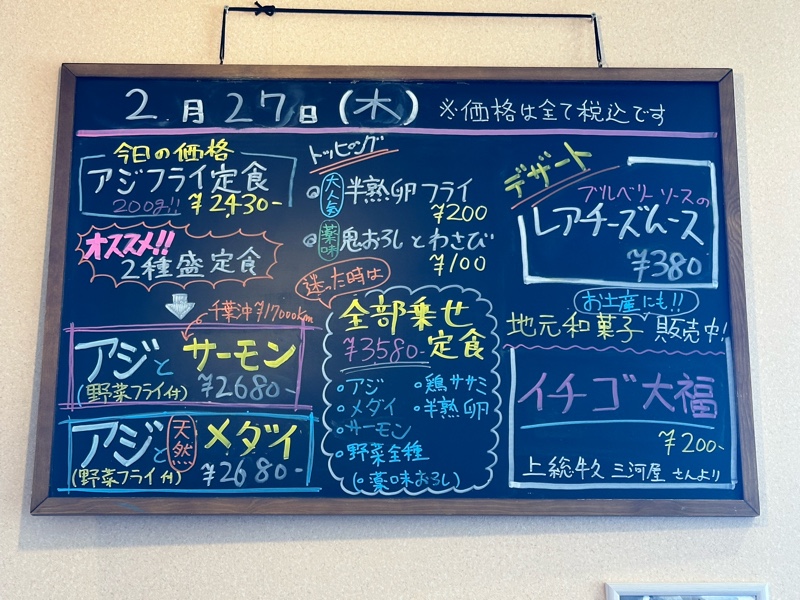 2月27日(木) ※価格は全て税込です
今日の価格
アジフライ定食
200g!! ¥2430-
オススメ!!
2種盛定食
千葉沖約17000km
アジとサーモン
(野菜フライ付) ¥2680-
アジと天然メダイ
(野菜フライ付) ¥2680-
トッピング
大人気 半熟卵フライ
¥200
薬味 鬼おろしとわさび
¥100
迷った時は
全部乗せ
¥3580- 定食
・アジ ・鶏ササミ
・メダイ ・半熟卵
・サーモン
・野菜全種
(・薬味おろし)
デザート
ブルベリーソースの
レアチーズムース
¥380
お土産にも!!
地元和菓子 販売中!
イチゴ大福
¥200-
上総牛久 三河屋 さんより